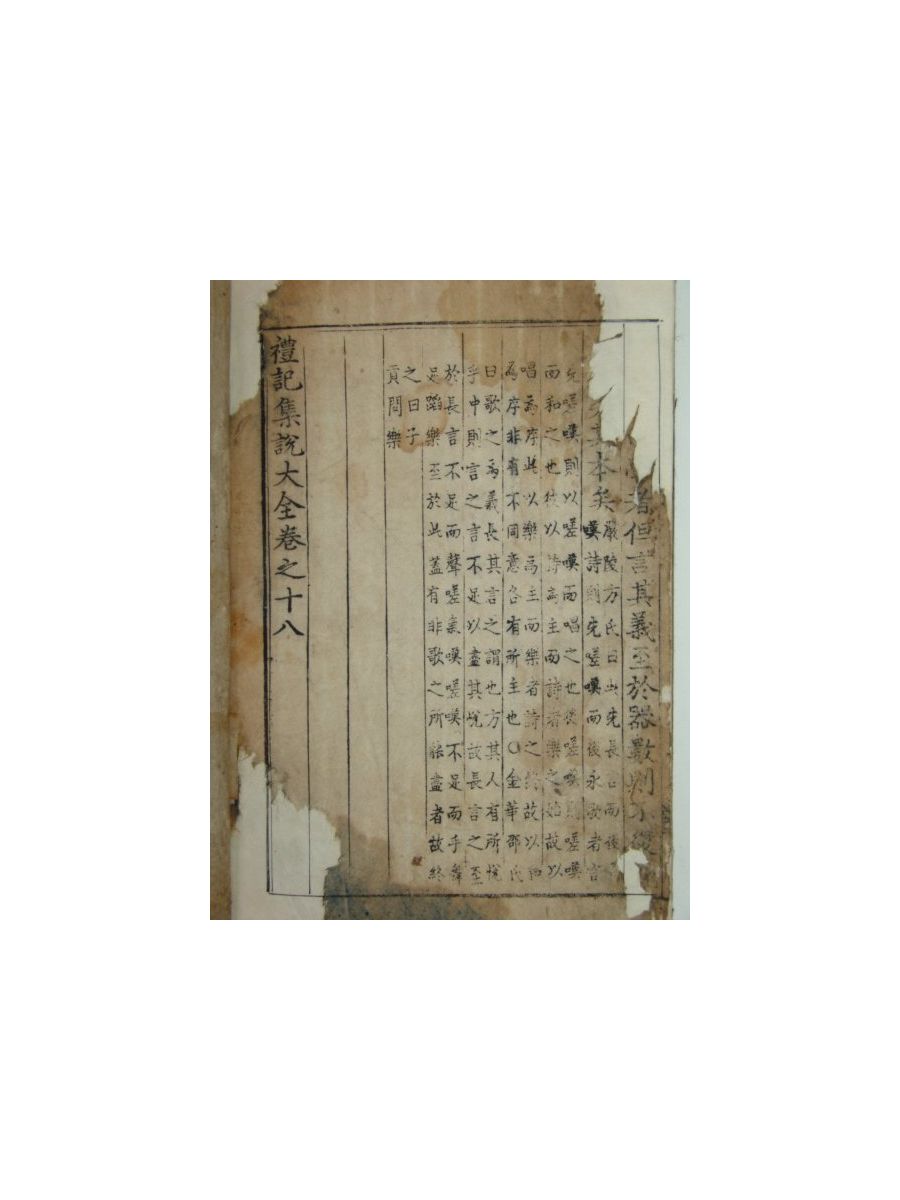 者但言其義至於器數則不復
其本矣
嚴陵方氏曰此先長言而後
嘆詩則先嗟嘆而後永歌者言
先嗟嘆則以嗟嘆而唱之也後嗟嘆則嗟嘆
而和之也彼以詩為主而詩者樂之始故以
唱為序此以樂為主而樂者詩之終故以和
為序非有不同意各有所主也〇金華邵氏
曰歌之為義長其言之謂也方其人有所悅
乎中則言之言不足以盡其悅故長言之至
於長言不足而聲嗟氣嘆嗟嘆不足而手舞
足蹈樂至於此蓋有非歌之所能盡者故終
之曰子
貢問樂
禮記集說大全卷之十八